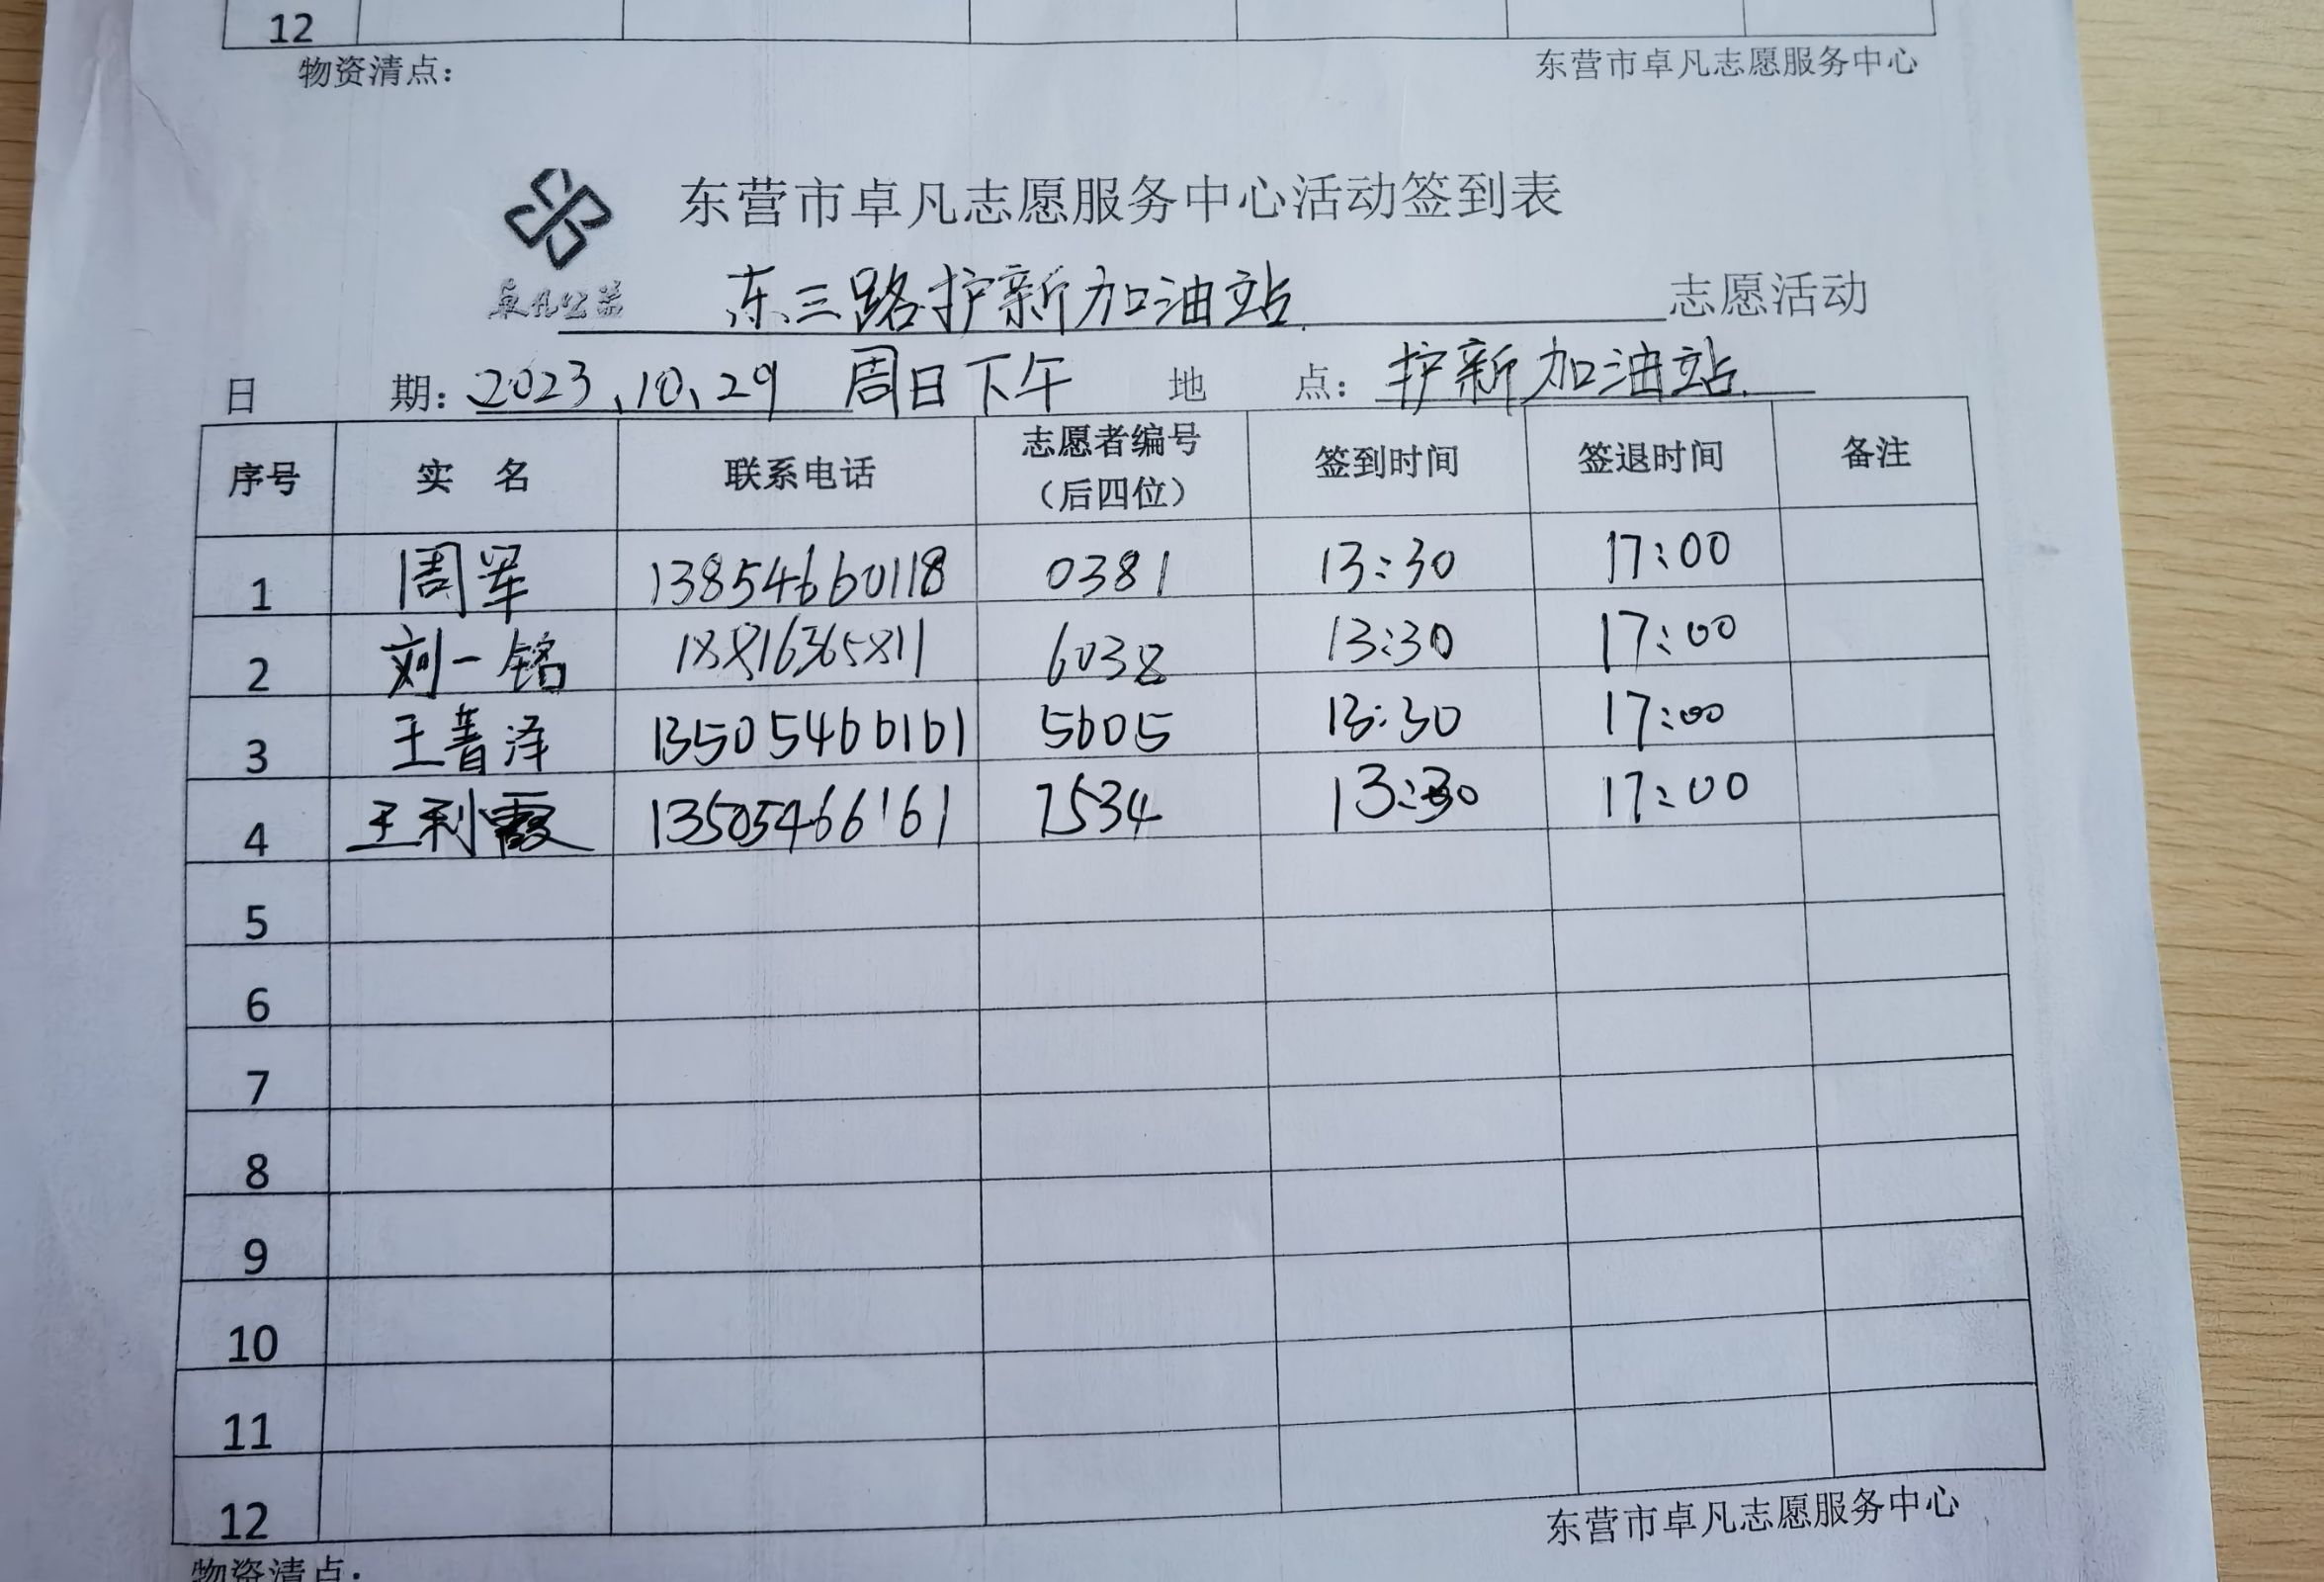 12
物资清点：
东营市卓凡志愿服务中心
东营市卓凡志愿服务中心活动签到表
卓凡公益
东三路护新加油站 志愿活动
日 期：2023、10、29 周日下午 地 点：护新加油站
序号 实 名 联系电话 志愿者编号（后四位） 签到时间 签退时间 备注
1 周军 13854660118 0381 13:30 17:00
2 刘一铭 18816365811 6038 13:30 17:00
3 王善泽 13505466161 5605 13:30 17:00
4 王利霞 13505466161 7534 13:30 17:00
5
6
7
8
9
10
11
12
东营市卓凡志愿服务中心
物资清点：